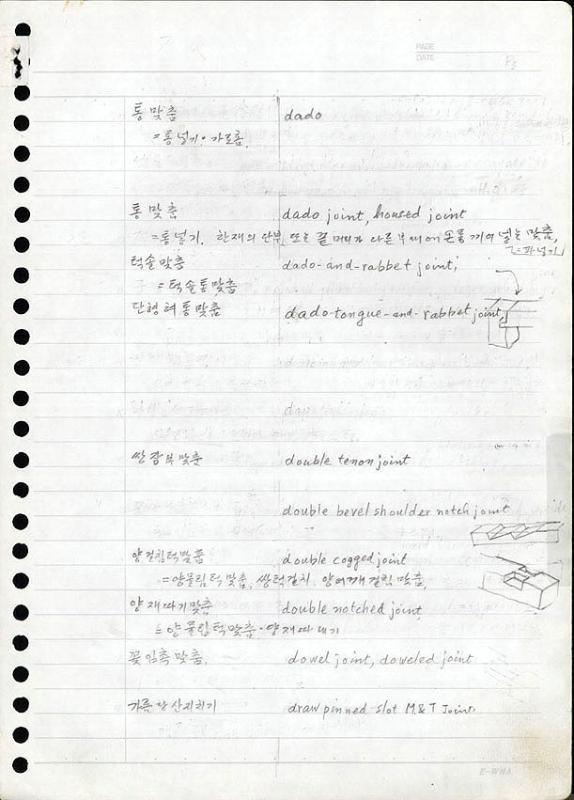 PAGE
DATE P3
통맞춤 dado
=통넣기·가로홈
통맞춤 dado joint, housed joint
=통넣기. 한재의 단부 또는 끝머리가 다른 부재에 끼여 넣는 맞춤,
턱솔맞춤 dado-and-rabbet joint,
=턱솔통맞춤
단형혀통맞춤 dado-tongue-and-rabbet joint,
쌍장부맞춤 double tenon joint
double bevel shoulder notch joint
양걸침턱맞춤 double cogged joint
=양물림턱맞춤, 쌍턱걸치, 양어깨걸림맞춤,
양재따기맞춤 double notched joint,
=양물림턱맞춤·양재따내기
꽂임촉맞춤, dowel joint, doweled joint
산지치기 draw pinned slot M.&T Joint.
E-WHA